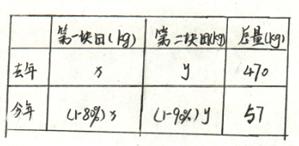 第一块田(kg) 第二块田(kg) 总量(kg)
去年 x y 470
今年 (1-80%)x (1-90%)y 57